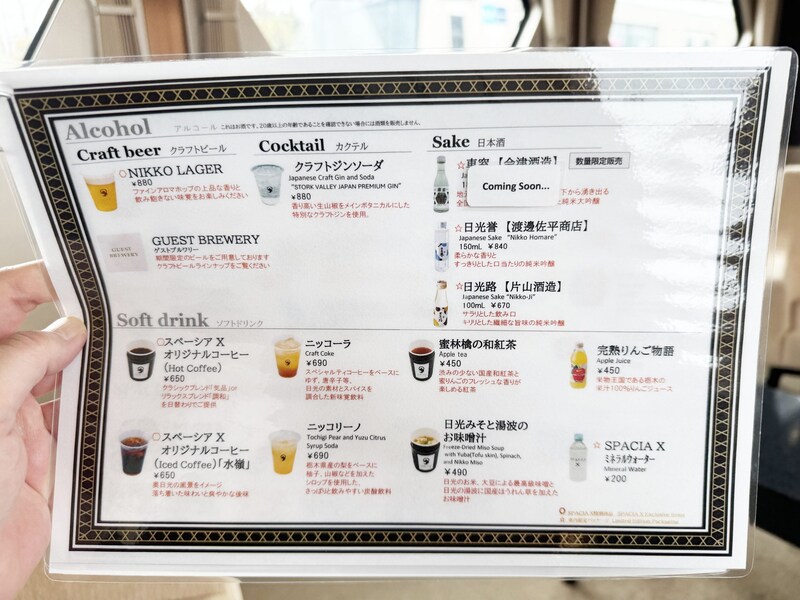 Alcohol アルコール これはお酒です。20歳以上の年齢であることを確認できない場合には酒類を販売しません。
Craft beer クラフトビール
○NIKKO LAGER
¥880
ファインアロマホップの上品な香りと
飲み飽きない味覚をお楽しみください
GUEST BREWERY
GUEST BREWERY
ゲストブルワリー
期間限定のビールをご用意しております
クラフトビールラインナップをご覧ください
Cocktail カクテル
クラフトジンソーダ
Japanese Craft Gin and Soda
"STORK VALLEY JAPAN PREMIUM GIN"
¥880
香り高い生山椒をメインボタニカルにした
特別なクラフトジンを使用。
Sake 日本酒
☆東空【会津酒造】 数量限定販売
Coming Soon...
下から湧き出る
純米大吟醸
☆日光誉【渡邊佐平商店】
Japanese Sake "Nikko Homare"
150mL ¥840
柔らかな香りと
すっきりとした口当たりの純米吟醸
☆日光路【片山酒造】
Japanese Sake "Nikko-Ji"
100mL ¥670
サラリとした飲み口
キリリとした繊細な旨味の純米吟醸
Soft drink ソフトドリンク
○スペーシア X
オリジナルコーヒー
(Hot Coffee)
¥650
クラシックブレンド「気品」or
リラックスブレンド「調和」
を日替わりでご提供
ニッコーラ
Craft Coke
¥690
スペシャルティコーヒーをベースに
ゆず、唐辛子等、
日光の素材とスパイスを
調合した新味覚飲料
蜜林檎の和紅茶
Apple tea
¥450
渋みの少ない国産和紅茶と
蜜りんごのフレッシュな香りが
楽しめる紅茶
完熟りんご物語
Apple Juice
¥450
果物王国である栃木の
果汁100%りんごジュース
○スペーシア X
オリジナルコーヒー
(Iced Coffee)「水嶺」
¥650
奥日光の風景をイメージ
落ち着いた味わいと爽やかな後味
ニッコリーノ
Tochigi Pear and Yuzu Citrus
Syrup Soda
¥690
栃木県産の梨をベースに
柚子、山椒などを加えた
シロップを使用した、
さっぱりと飲みやすい炭酸飲料
日光みそと湯波の
お味噌汁
Freeze-Dried Miso Soup
with Yuba(Tofu skin), Spinach,
and Nikko Miso
¥490
日光のお米、大豆による最高級味噌と
日光の湯波に国産ほうれん草を加えた
お味噌汁
☆ SPACIA X
ミネラルウォーター
Mineral Water
¥200